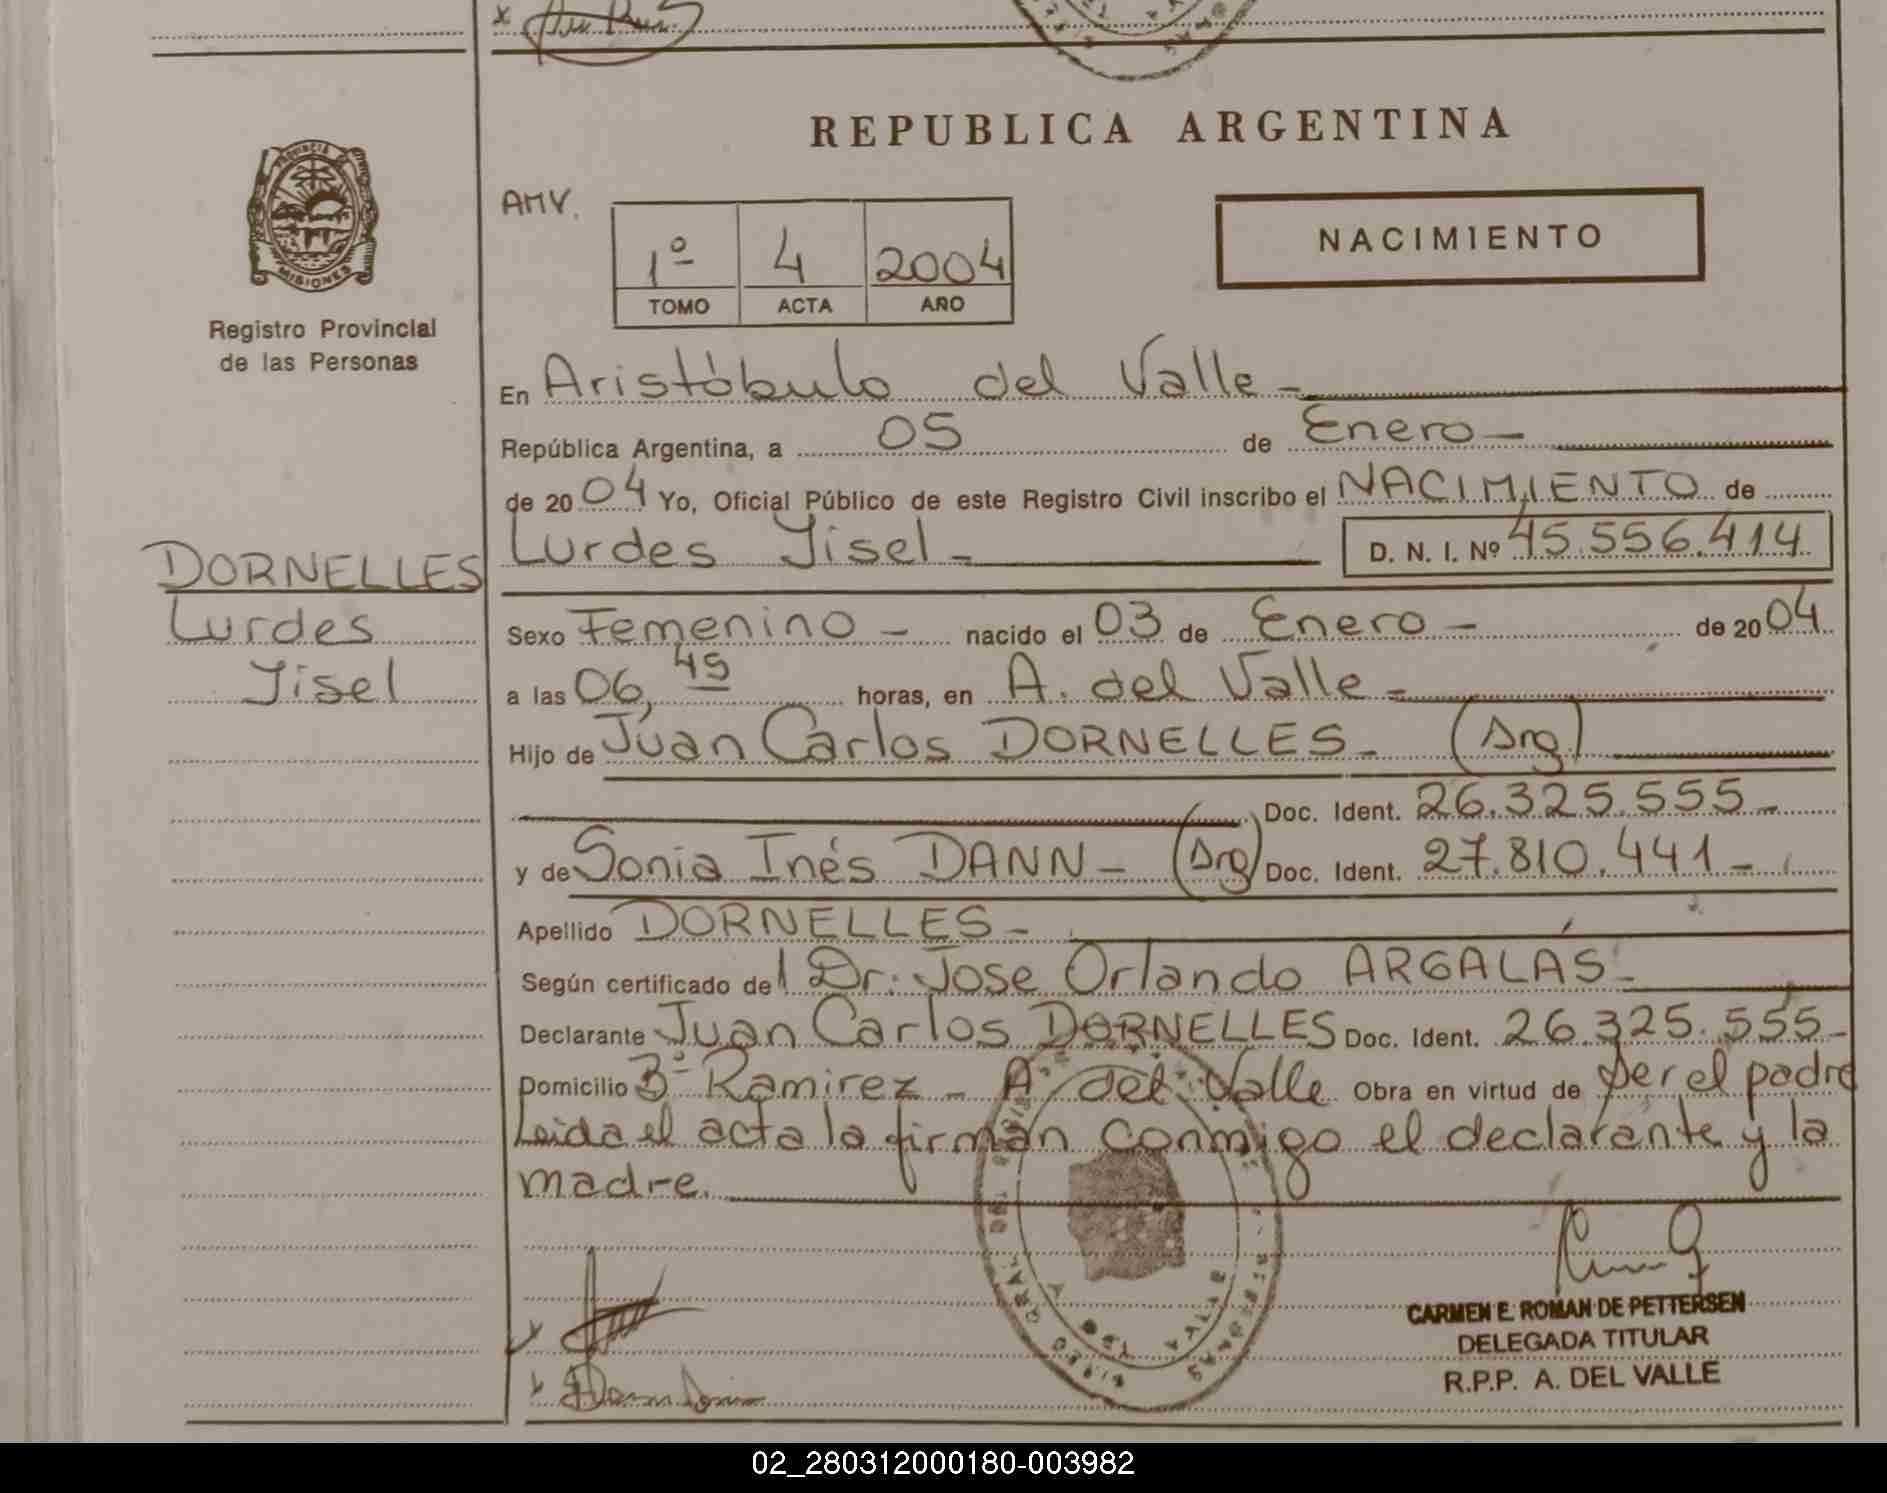 REPUBLICA ARGENTINA
PROVINCIA DE
MISIONES
Registro Provincial
de las Personas
AMV.
1º 4 2004
TOMO ACTA AÑO
NACIMIENTO
En Aristóbulo del Valle -
República Argentina, a 05 de Enero -
de 2004 Yo, Oficial Público de este Registro Civil inscribo el NACIMIENTO de
Lurdes Jisel - D. N. I. Nº 45.556.414
DORNELLES
Lurdes
Jisel
Sexo Femenino - nacido el 03 de Enero - de 2004
a las 06,45 horas, en A. del Valle -
Hijo de Juan Carlos DORNELLES - (Arg)
Doc. Ident. 26.325.555 -
y de Sonia Inés DANN - (Arg) Doc. Ident. 27.810.441 -
Apellido DORNELLES -
Según certificado del Dr. Jose Orlando ARGALAS -
Declarante Juan Carlos DORNELLES Doc. Ident. 26.325.555 -
Domicilio Bº Ramirez - A. del Valle Obra en virtud de ser el padre
Leida el acta la firman conmigo el declarante y la
madre.
CARMEN E. ROMAN DE PETTERSEN
DELEGADA TITULAR
R.P.P. A. DEL VALLE
02_280312000180-003982